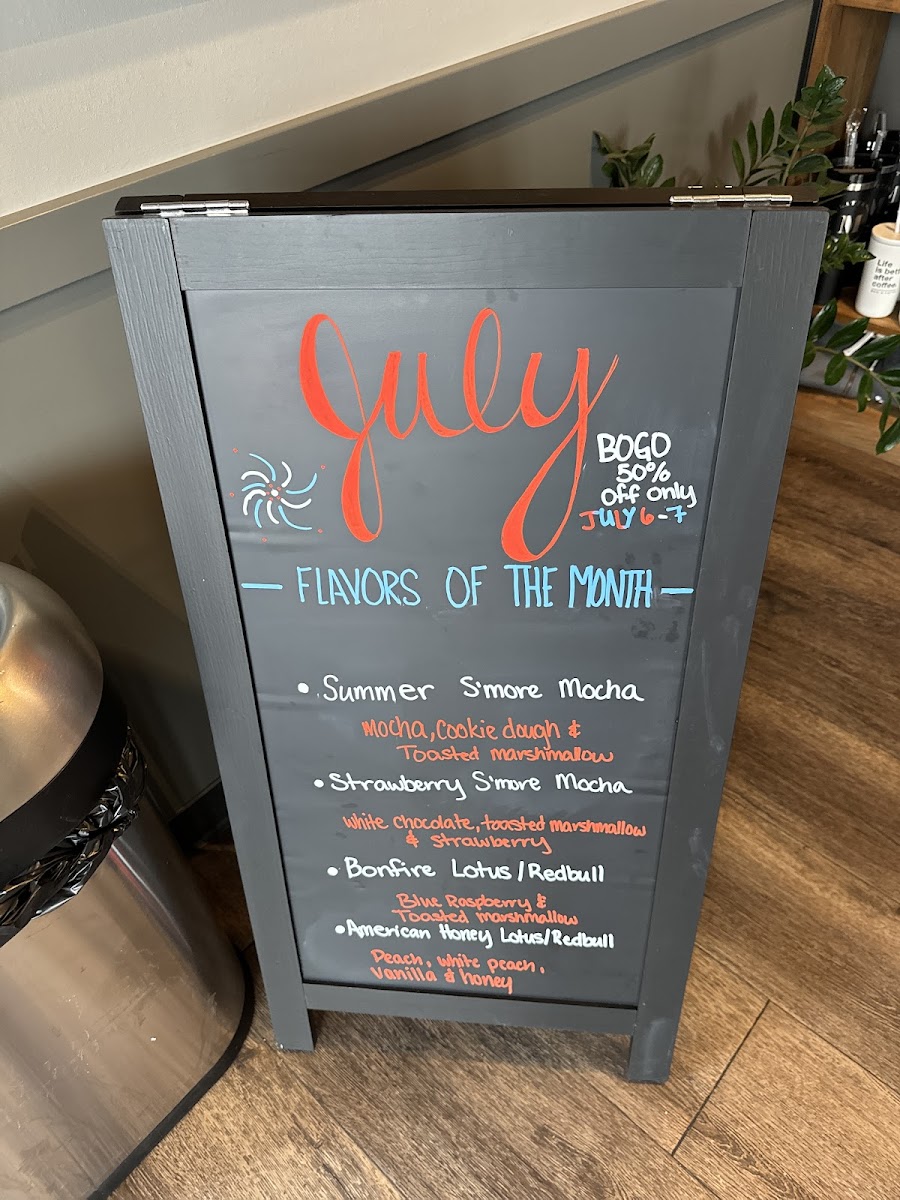 July
BOGO
50%
off only
JULY 6-7
— FLAVORS OF THE MONTH —
• Summer S'more Mocha
Mocha, Cookie dough &
Toasted marshmallow
• Strawberry S'more Mocha
white chocolate, toasted marshmallow
& strawberry
• Bonfire Lotus/Redbull
Blue Raspberry &
Toasted marshmallow
• American Honey Lotus/Redbull
Peach, white peach,
vanilla & honey
Life
is bett
after
coffee.